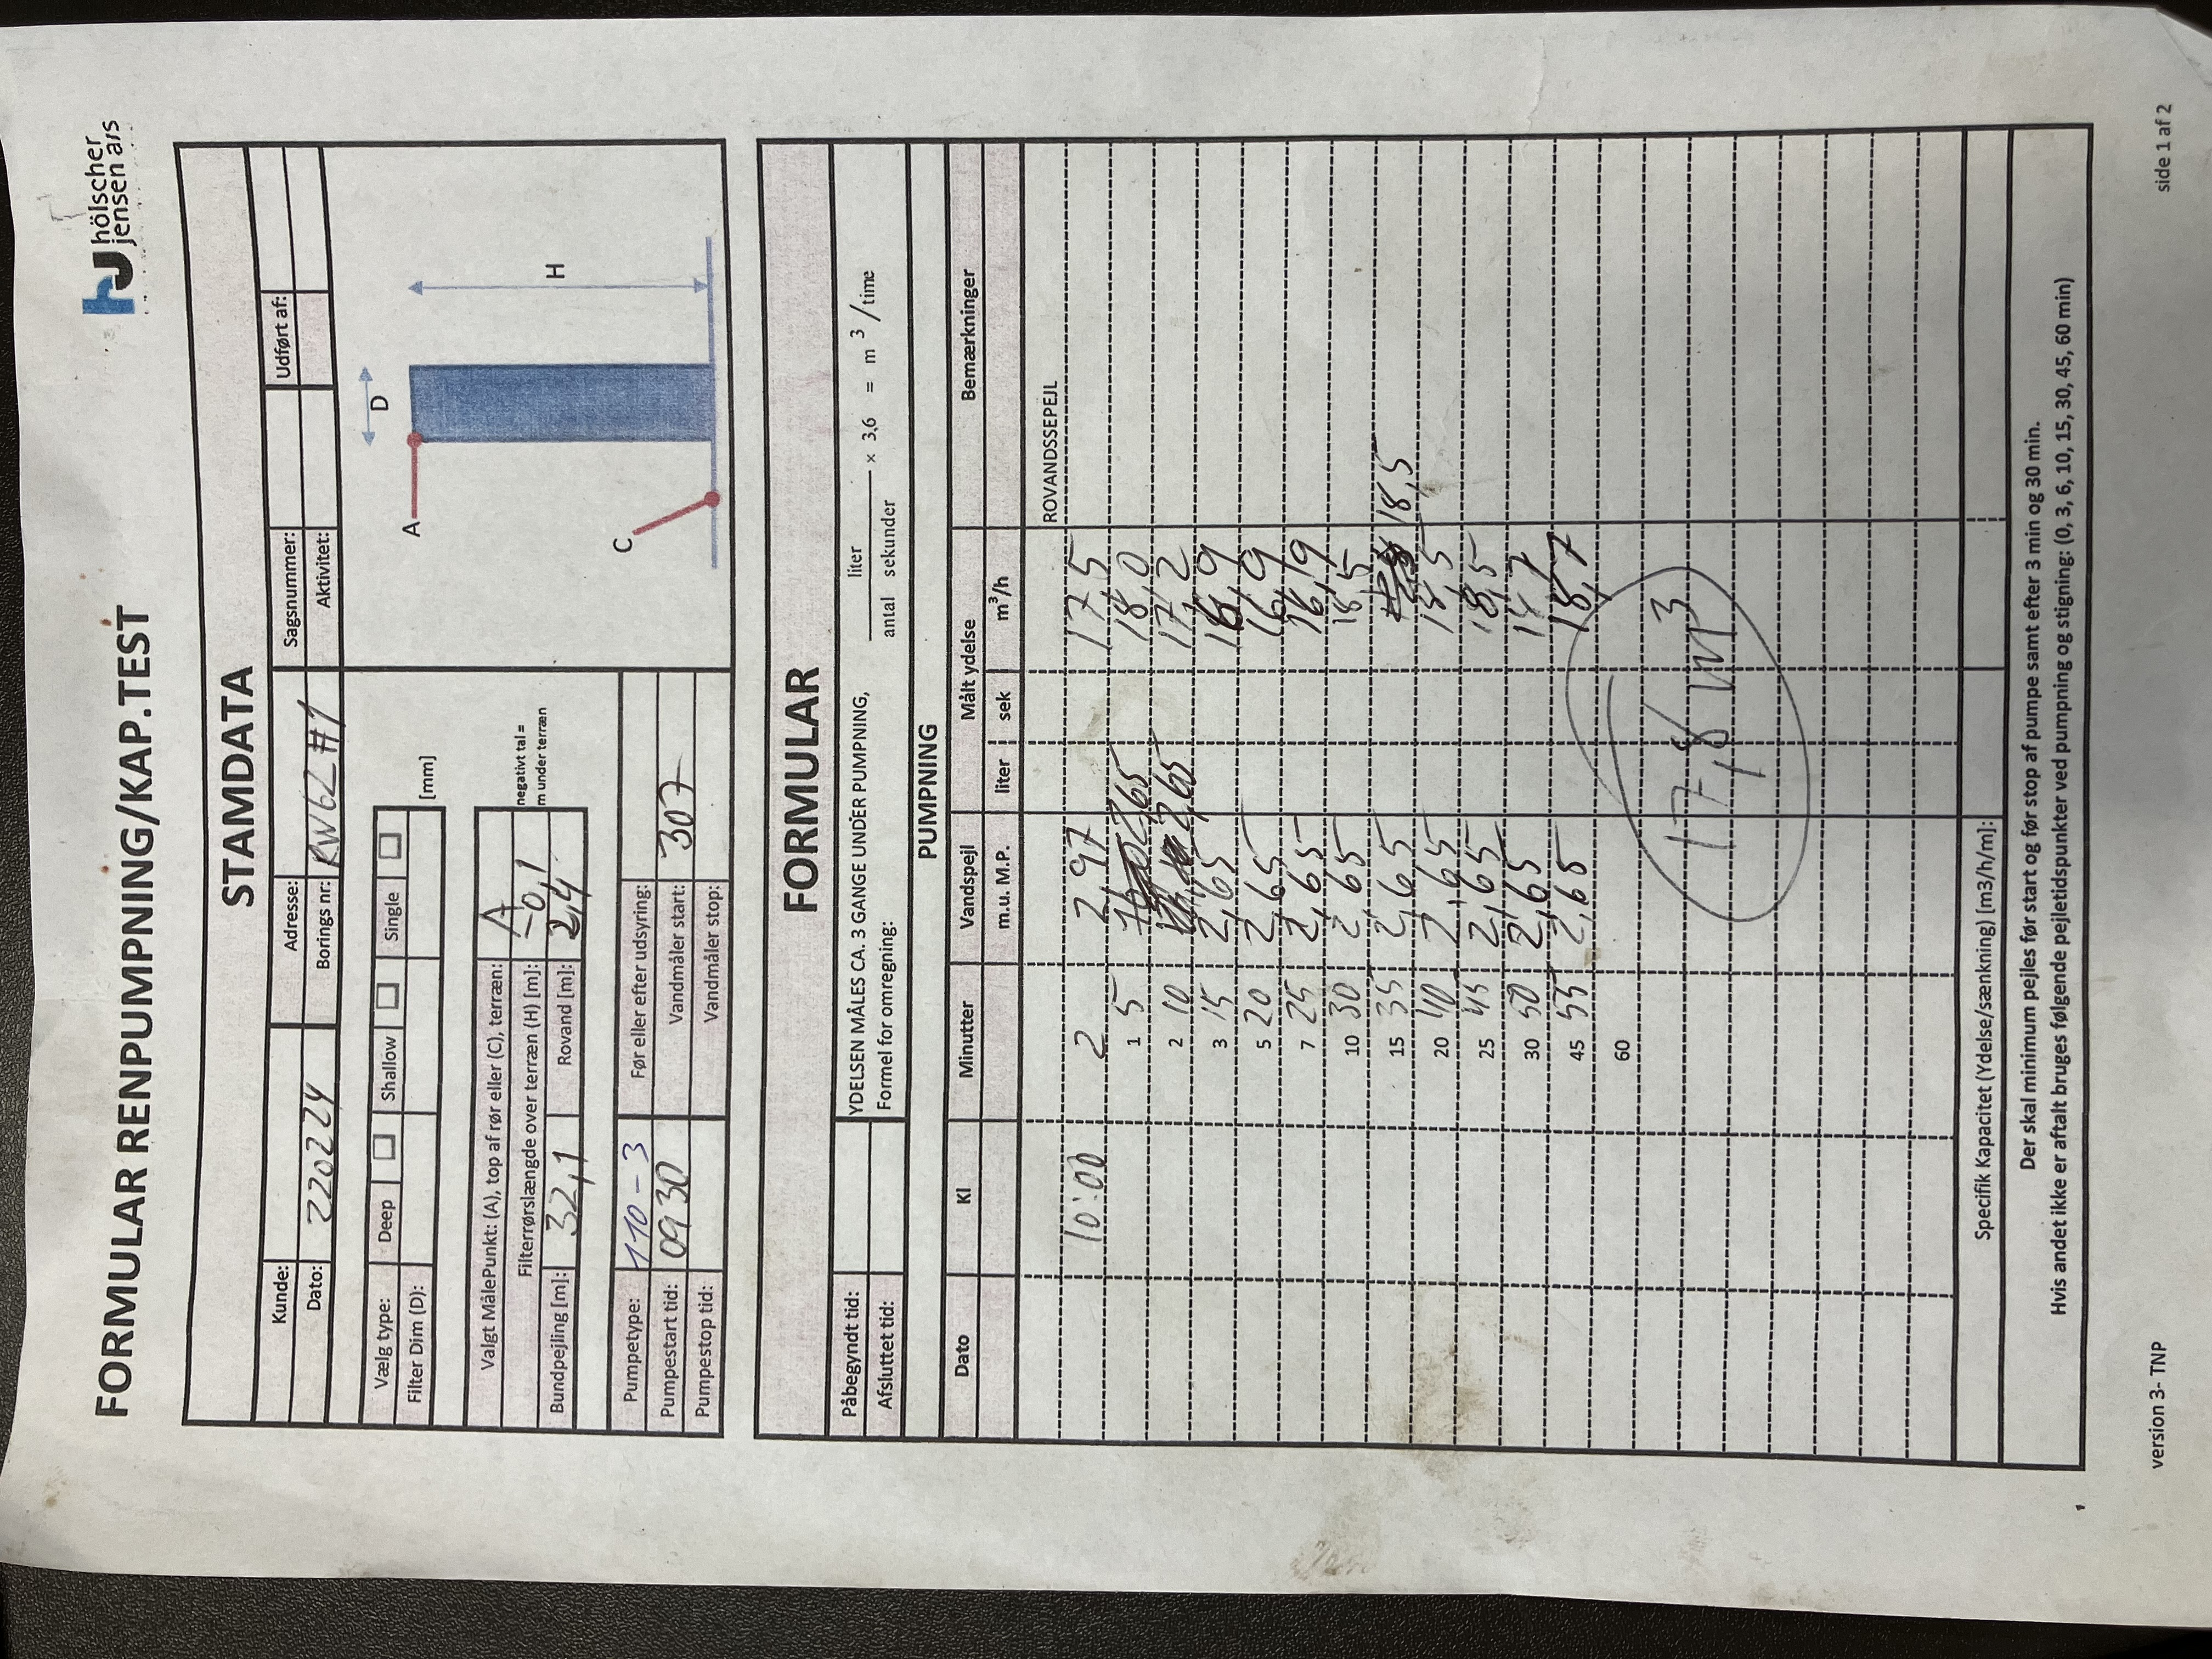 hölscher
jensen a/s
FORMULAR RENPUMPNING/KAP.TEST
STAMDATA
Kunde: Adresse: Sagsnummer: Udført af:
Dato: 220224 Borings nr: RW62 #1 Aktivitet:
Vælg type: Deep Shallow Single
Filter Dim (D): [mm]
Valgt MålePunkt: (A), top af rør eller (C), terræn: A
Filterrørslængde over terræn (H) [m]: -0,1 negativt tal =
m under terræn
Bundpejling [m]: 32,1 Rovand [m]: 2,4
D
A
H
C
Pumpetype: 110-3 Før eller efter udsyring:
Pumpestart tid: 0930 Vandmåler start: 307
Pumpestop tid: Vandmåler stop:
FORMULAR
Påbegyndt tid: YDELSEN MÅLES CA. 3 GANGE UNDER PUMPNING,
Afsluttet tid: Formel for omregning:
liter
antal sekunder
× 3,6 = m 3 / time
PUMPNING
Dato Kl Minutter Vandspejl Målt ydelse Bemærkninger
m.u. M.P. liter sek m3/h
ROVANDSSEPEJL
10:00 2 2,97 17,5
1 5 2,65 18,0
2 10 2,65 17,2
3 15 2,65 16,9
5 20 2,65 16,9
7 25 2,65 16,9
10 30 2,65 18,5
15 35 2,65 18,5
20 40 2,65 18,5
25 45 2,65 18,5
30 50 2,65 18,7
45 55 2,65 18,7
60
17,8 m3
Specifik Kapacitet (Ydelse/sænkning) [m3/h/m]:
Der skal minimum pejles før start og før stop af pumpe samt efter 3 min og 30 min.
Hvis andet ikke er aftalt bruges følgende pejletidspunkter ved pumpning og stigning: (0, 3, 6, 10, 15, 30, 45, 60 min)
version 3- TNP side 1 af 2